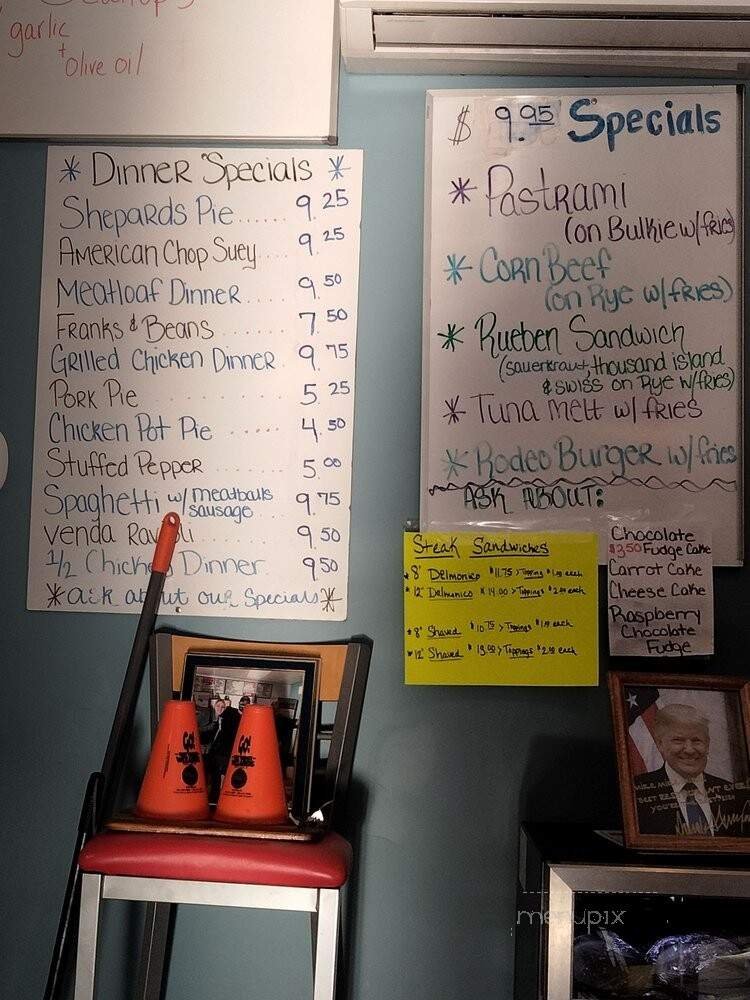 garlic
+
olive oil
* Dinner Specials *
Shepards Pie...... 9.25
American Chop Suey.... 9.25
Meatloaf Dinner..... 9.50
Franks & Beans...... 7.50
Grilled Chicken Dinner. 9.75
Pork Pie........... 5.25
Chicken Pot Pie..... 4.50
Stuffed Pepper...... 5.00
Spaghetti w/ meatballs sausage 9.75
Venda 9.50
1/2 Chicken Dinner 9.50
*ask about our Specials*
$ 9.95 Specials
* Pastrami
(on Bulkie w/fries)
* Corn Beef
(on Rye w/fries)
* Rueben Sandwich
(sauerkraut, thousand island
& swiss on Rye w/fries)
* Tuna melt w/ fries
* Rodeo Burger w/fries
ASK ABOUT:
Steak Sandwiches
8" Delmonico $11.75 > Topping each
12" Delmonico $14.00 > Toppings each
8" Shaved $10.75 > Toppings each
12" Shaved > Toppings each
Chocolate
$3.50 Fudge Cake
Carrot Cake
Cheese Cake
Raspberry
Chocolate
Fudge
GO!
GO!
menupix